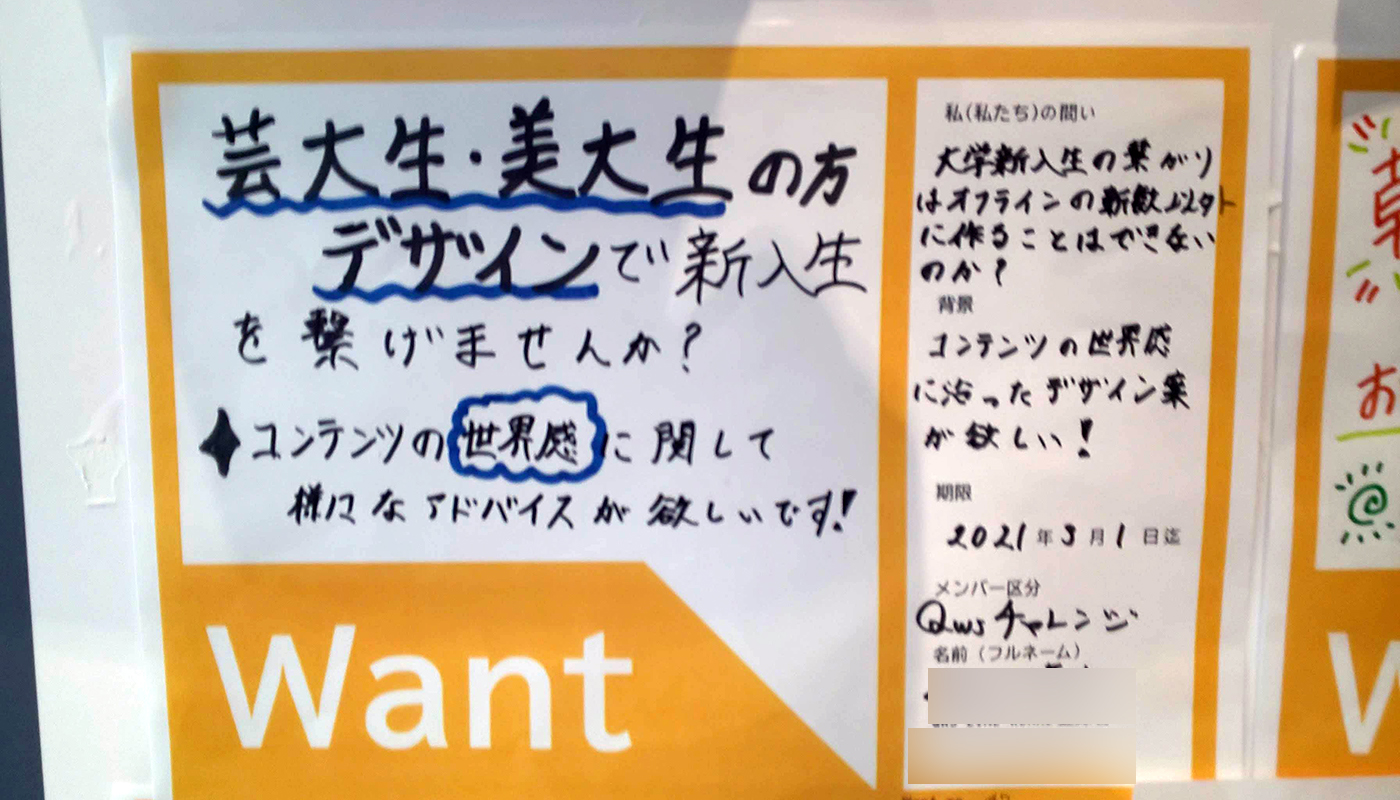 芸大生・美大生の方
デザインで新入生
を繋げませんか?
コンテンツの世界感に関して
様々なアドバイスが欲しいです!
Want
私(私たち)の問い
大学新入生の繋がり
はオフラインの新歓以外
に作ることはできない
のか?
背景
コンテンツの世界感
に沿ったデザイン案
が欲しい!
期限
2021年3月1日迄
メンバー区分
Qwsチャレンジ
名前(フルネーム)
お
W